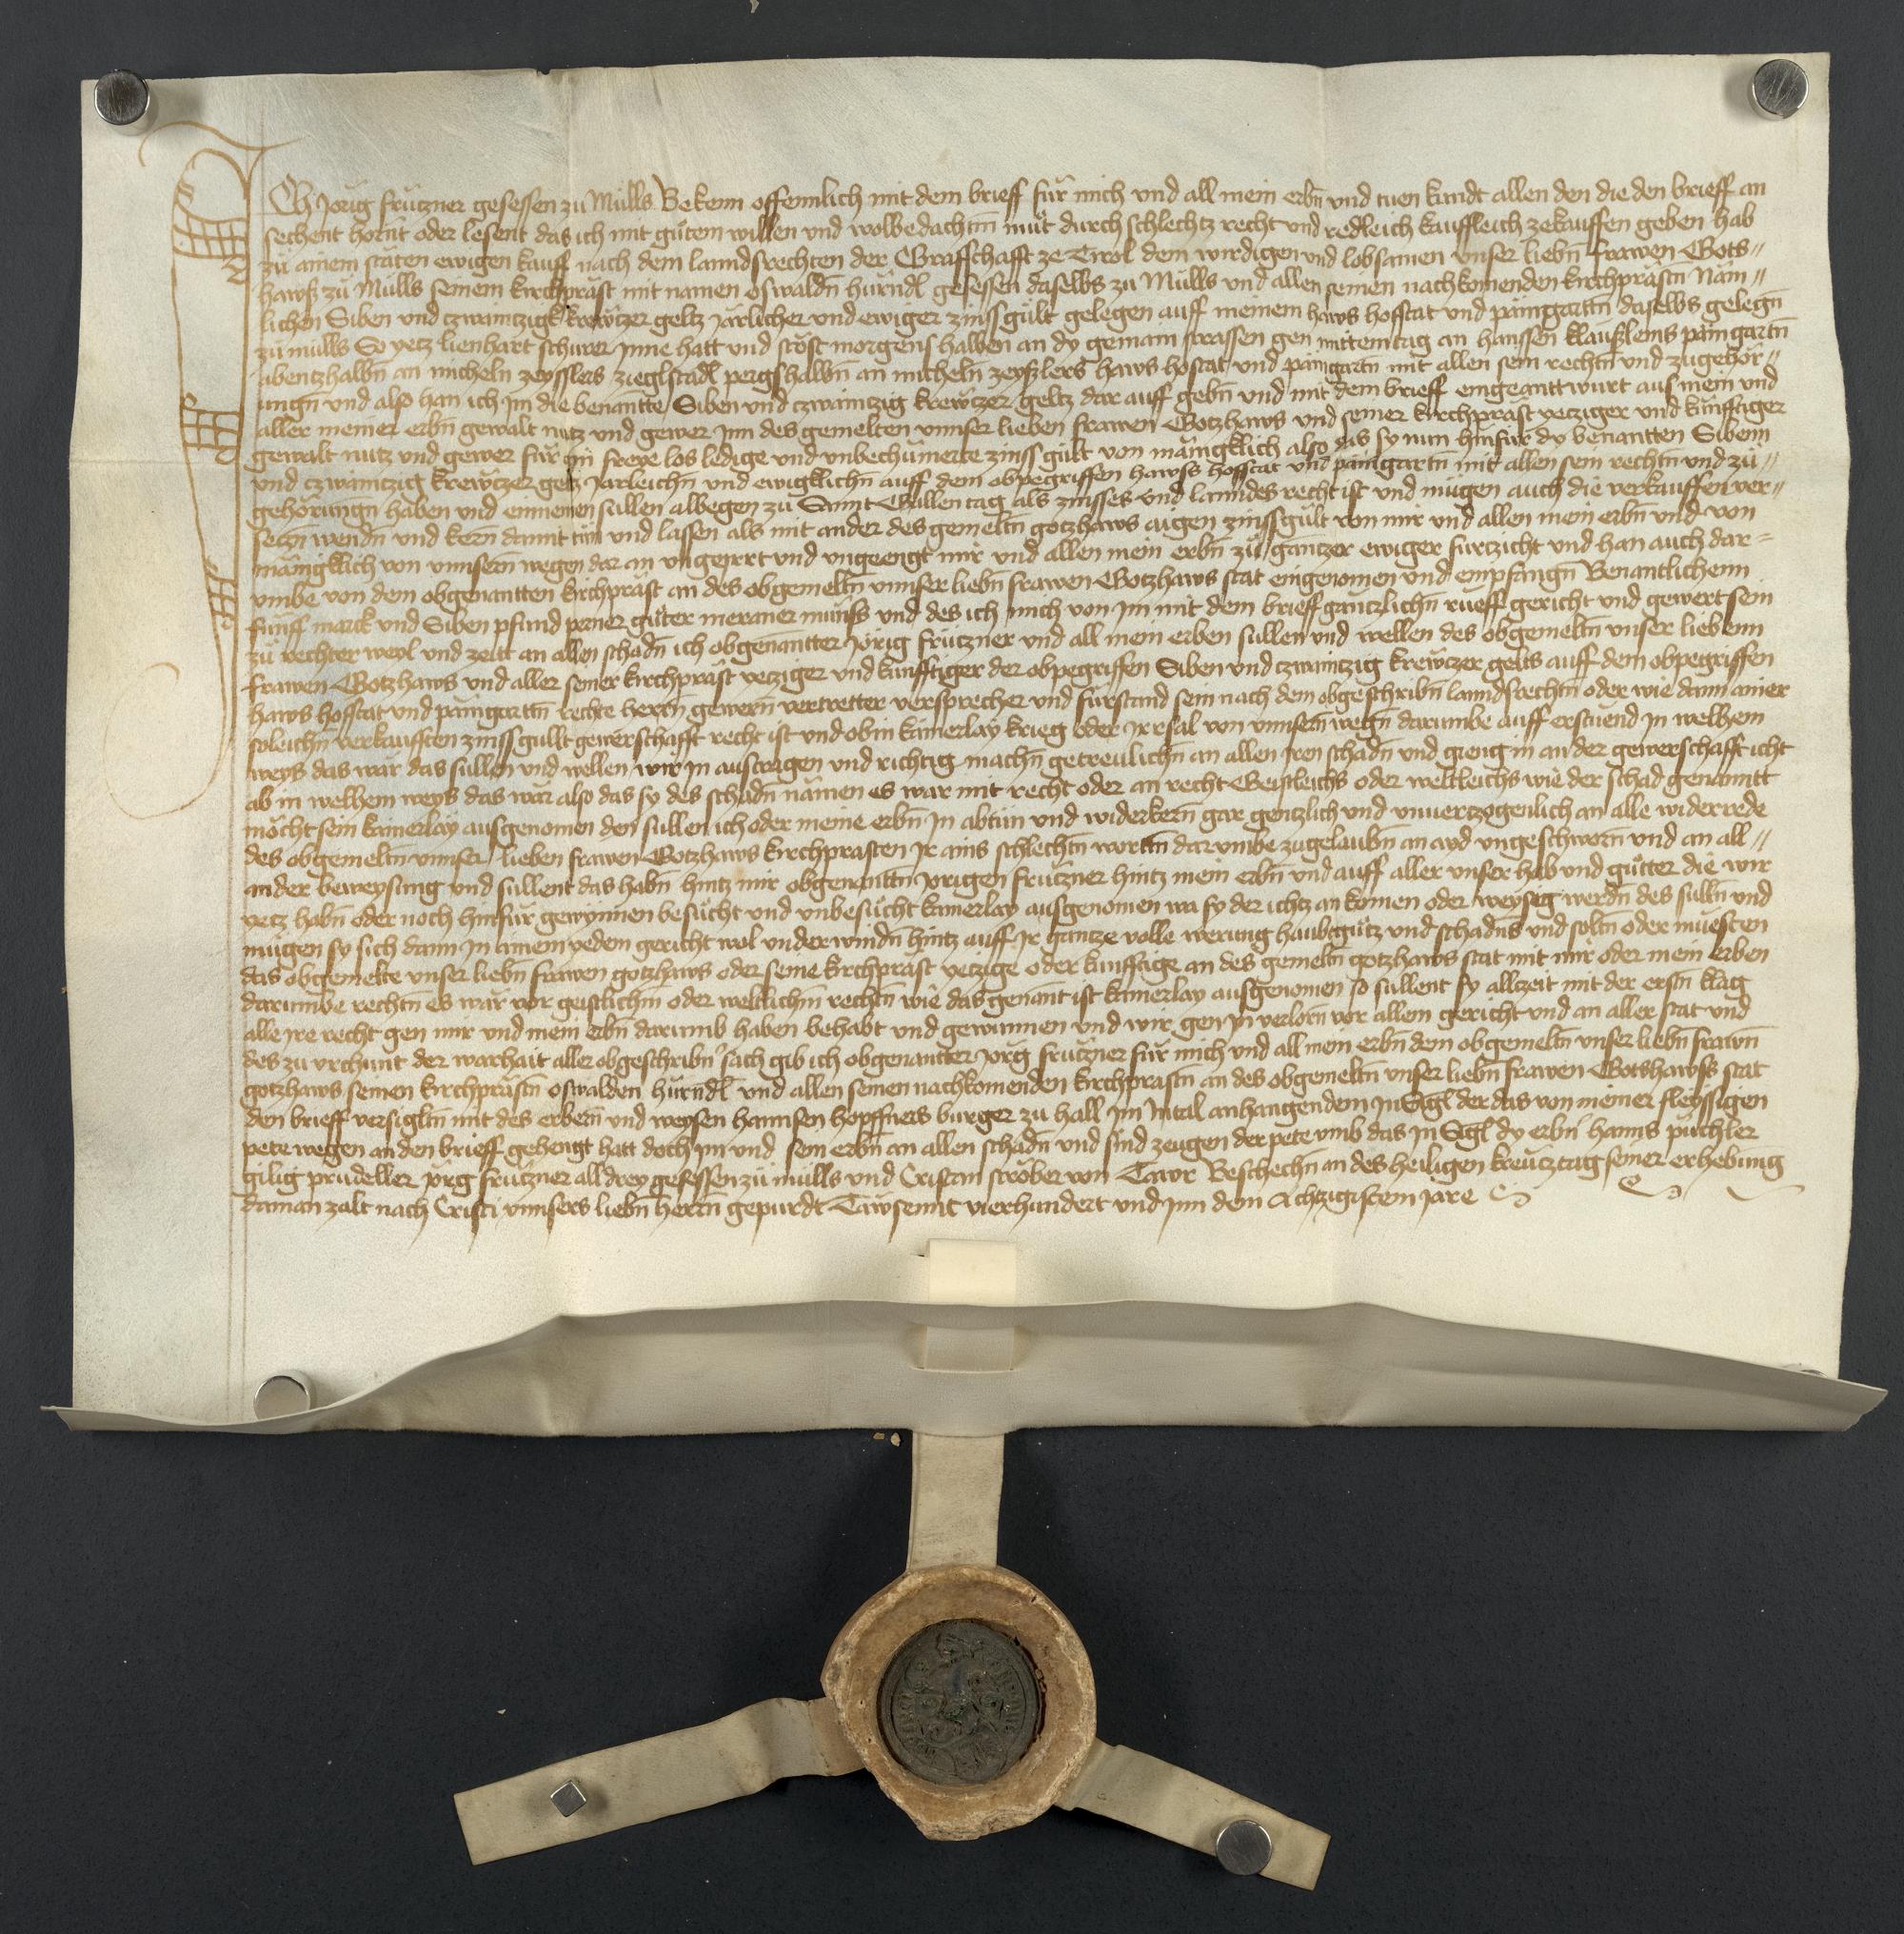 Ich Jorig frúczner gesessen zu Mülls Bekenn offennlich mit dem brieff für mich und all mein erbn und tuen kundt allen den die den brieff an
sechent hornt oder lesent das ich mit gůtem willen und wolbedachtm můt durch schlechtz recht und redleich kauffleich zekauffen geben hab
zů ainem stäten ewigen kauff nach dem lanndsrechten der Graffschafft ze Tirol dem wirdigen und lobsamen unser liebn frawen Gots„
hawß zů Mülls seinem kirchpräst mit namen oswaldn húrndl gesessen daselbs zu Mülls und allen seinen nachkomenden kirchprästn Näm„
lichen Siben und czwaintzigk krewczer geltz Järlicher und ewiger zinssgült gelegen auff meinem haws hofstat und pämgartn daselbs gelegn
zů mülls So yetz lienhart schurer Inne hatt und stost morgens halben an dy gemain strassen gen mittemtag an hanssen klaußleins pämgartn
abentzhalbn an micheln zeysslers zieglstadl pergshalbn an micheln zeyßlers haws hofstat und pämgartn mit allen sein rechtn und zugehör„
ungn und also han ich im die benantte Siben und czwaintzig krewczer geltz dar auff gebn und mit dem brieff eingeantwurt aus mein und
aller meiner erbn gewalt nutz und gewer Inn des gemelten unnser lieben frawen Gotzhaws und seiner kirchpräst yetziger und kunfftiger
gewalt nutz und gewer für ein freye los ledige und unbechumerte zinss gült von mänigklich also das sy nun hinfür dy benantten Sibenn
und czwaintzig krewczer geltz Jarleichn und ewigklichn auff dem obpegriffen hawss hofstat und pämgartn mit allen sein rechtn und zů„
gehörungn haben und einnemen sullen albegen zu Sannt Gallen tag als zinsses und lanndes recht ist und mügen auch die verkauffen ver„
seczn wendn und kern damit tůn und lassen als mit ander des gemeltn gotzhaws aigen zinssgült von mir und allen mein erbn und von
mänigklich von unnsern wegen dar an ungeirrt und ungeengt mir und allen mein erbn zů gantzer ewiger furtzicht und han auch dar=
umbe von dem obgenantten kirchpräst an des obgemeltn unnser liebn frawen Gotzhaws stat eingenomen und empfangn Benantlichenn
fünff marck und Siben pfund perner gůter meraner münss und des ich mich von Im mit dem brieff gantzlichn rueff gericht und gewert sein
zu rechter weyl und zeitt an allen schadn ich obgenantter Jorig frúczner und all mein erben sullen und wellen des obgemeltn unser liebenn
frawen Gotzhaws und aller seiner kirchpräst yetziger und kunfftiger der obpegriffen Siben und czwaintzig krewczer gelts auff dem obpegriffen
haws hofstat und pämgartn rechte herrn gewern vertretter versprecher und fürstand sein nach dem obgeschribn lanndsrechtn oder wie dann ainer
soleichn verkaufften zinssgullt gewerschafft recht ist und ob in kainerlay krieg oder Irrsal von unnsern wegn darumbe auff erstuend In welhem
weys das wär das sullen und wellen wir In austragen und richtig machn getreulichn an allen Iren schadn und gieng in an der gewerschafft icht
ab in welhem weys das wär also das sy des schadn nämen es war mit recht oder an recht Geistleichs oder weltleichs wie der schad genanntt
möcht sein kainerlay ausgenomen den sullen ich oder meine erbn In abtůn und widerkern gar gentzlich und unvertzogenlich an alle widerrede
des obgemeltn unnser lieben frawen Gotzhaws kirchprästen Ir ains schlechtn wortn darumbe zugelaubn an ayd ungeschworn und an all„
ander beweysung und sullent das habn hintz mir obgenanttn Jorigen frúczner hintz mein erbn und auff aller unser hab und gůtter die wir
yetz habn oder noch hinfür gewynnen besůcht und unbesůcht kainerlay ausgenomen wa sy der ichtz an komen oder weyseg werdn des sulln und
mügen sy sich dann In ainem yedem gericht wol underwindn hintz auff Ir gantze volle werung haubtgůtz und schadns und soltn oder müesten
das obgemelte unser liebn frawen gotzhaws oder seine kirchpräst yetzige oder kunfftige an des gemeltn gotzhaws stat mit mir oder mein erben
darumbe rechtn es wär vor geistlichm oder weltlichm rechtn wie das genant ist kainerlay ausgenomen so sullent sy alltzeit mit der erstn klag
alle Ire recht gen mir und mein erbn darumb haben behabt und gewunnen und wir gen In verlorn vor allem gericht und an aller stat und
des zu vrchunt der warhait aller obgeschribn sach gib ich obgenantter Jorg frúczner für mich und all mein erbn dem obgemeltn unser liebn frawn
gotzhaws seinen kirchprästn oswalden húrndl und allen seinen nachkomenden kirchprästn an des obgemeltn unser liebn frawen Gotshawss stat
den brieff versigltn mit des erbern und weysen hannsen hopffners burger zu hall Im Intal anhangendem InSigl der das von meiner fleyssigen
pete wegen an den brieff gehengt hatt doch Im und sein erbn an allen schadn und sind zeugen der pete umb das InSigl dy erbn hanns puchler
gilig prudeller Jorg frúczner all drey gesessen zů mülls und Cristan strober von Tawr Beschechn an des heiligen kreutztag seiner erhebung
da man zalt nach Cristi unnsers liebn herrn gepurdt Tawsennt vierhundert und Inn dem Achtzigistem Jare